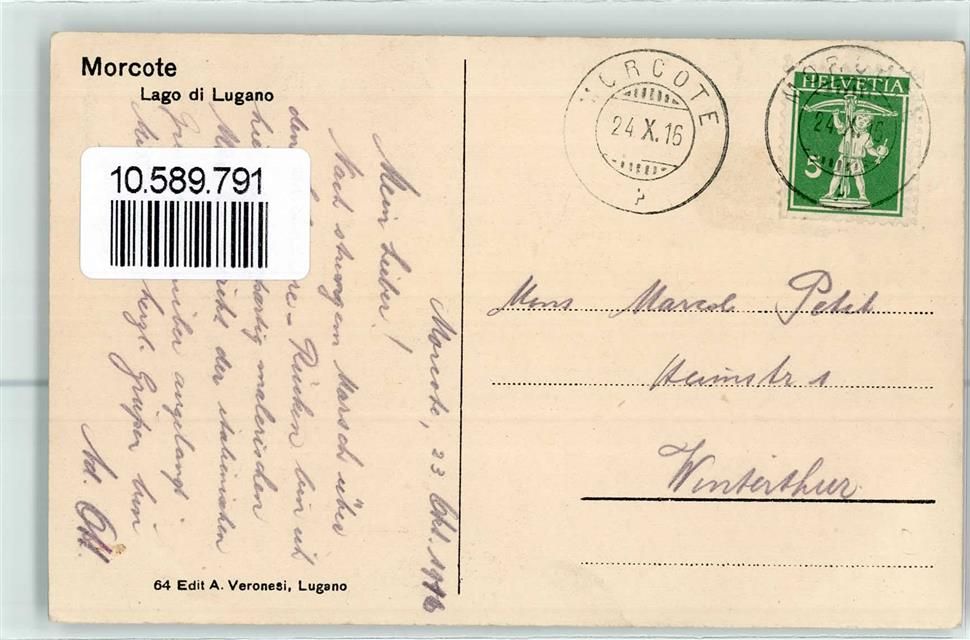 Morcote
Lago di Lugano
10.589.791
MORCOTE
24.X.16
HELVETIA
24.X.16
5
Morcote, 23 Okt. 1916
Mein Lieber!
Nach strengem Marsch über
den Rücken bin ich
malerischen
der italienischen
angelangt
Grüßen bin
Ad. Ott.
Mons Marcel Petit
Heimstr 1
Winterthur
64 Edit A. Veronesi, Lugano